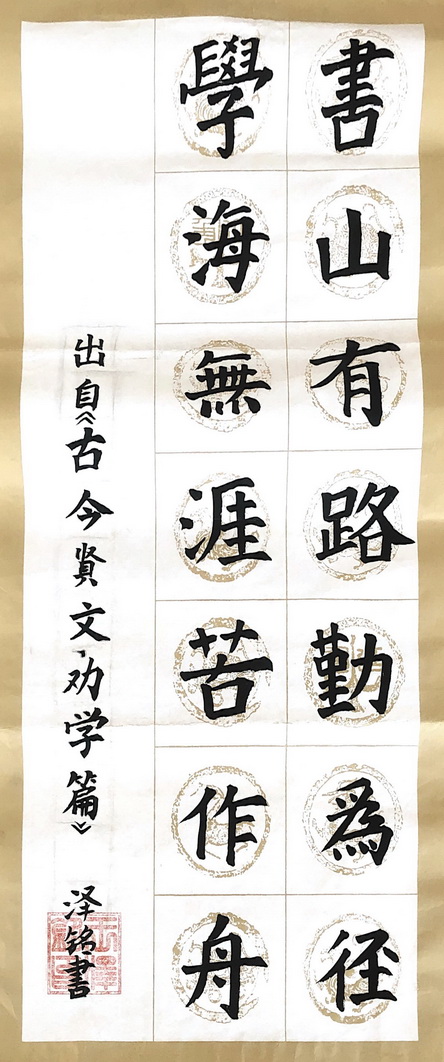 書山有路勤為徑
學海無涯苦作舟
出自《古今賢文·劝学篇》
泽铭書